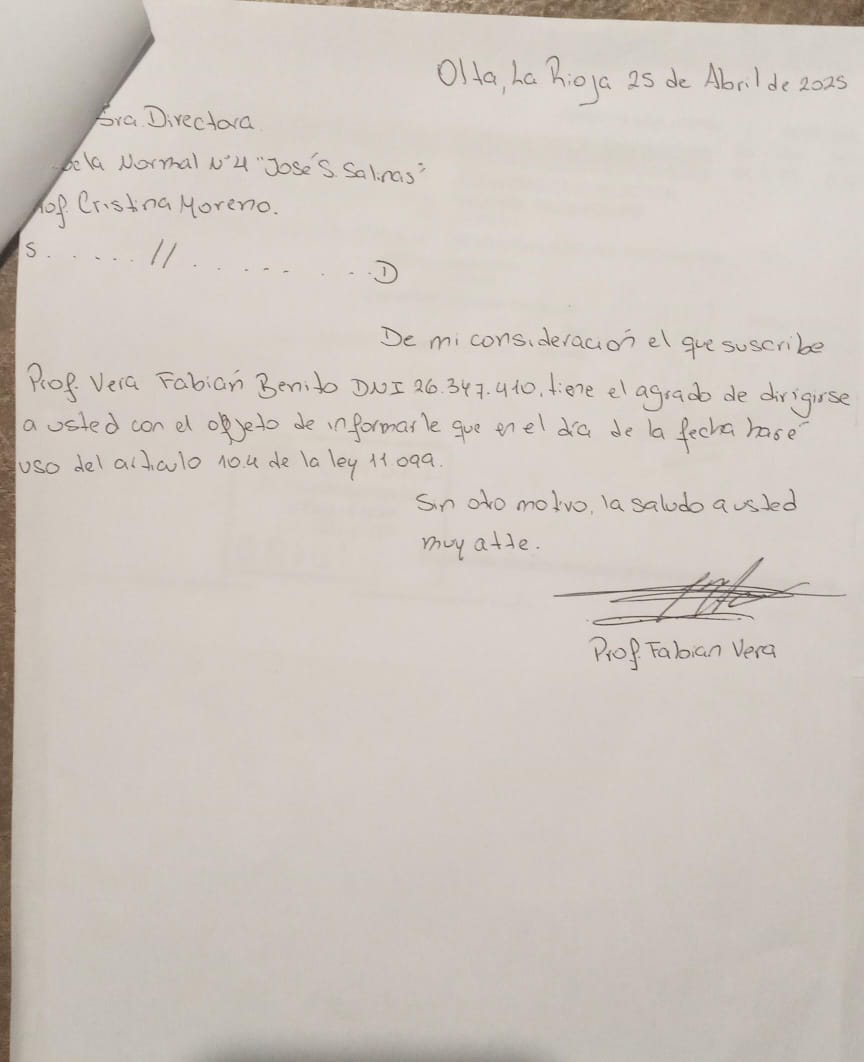 Olta, La Rioja 25 de Abril de 2025
Sra. Directora
ela Normal N°4 "José S. Salinas"
of. Cristina Moreno.
S. . . . . . // . . . . . . . . . D
De mi consideración el que suscribe
Prof. Vera Fabián Benito DNI 26.347.410, tiene el agrado de dirigirse
a usted con el objeto de informarle que en el día de la fecha hase
uso del articulo 10.4 de la ley 11 099.
Sin otro motivo, la saludo a usted
muy atte.
Prof. Fabian Vera